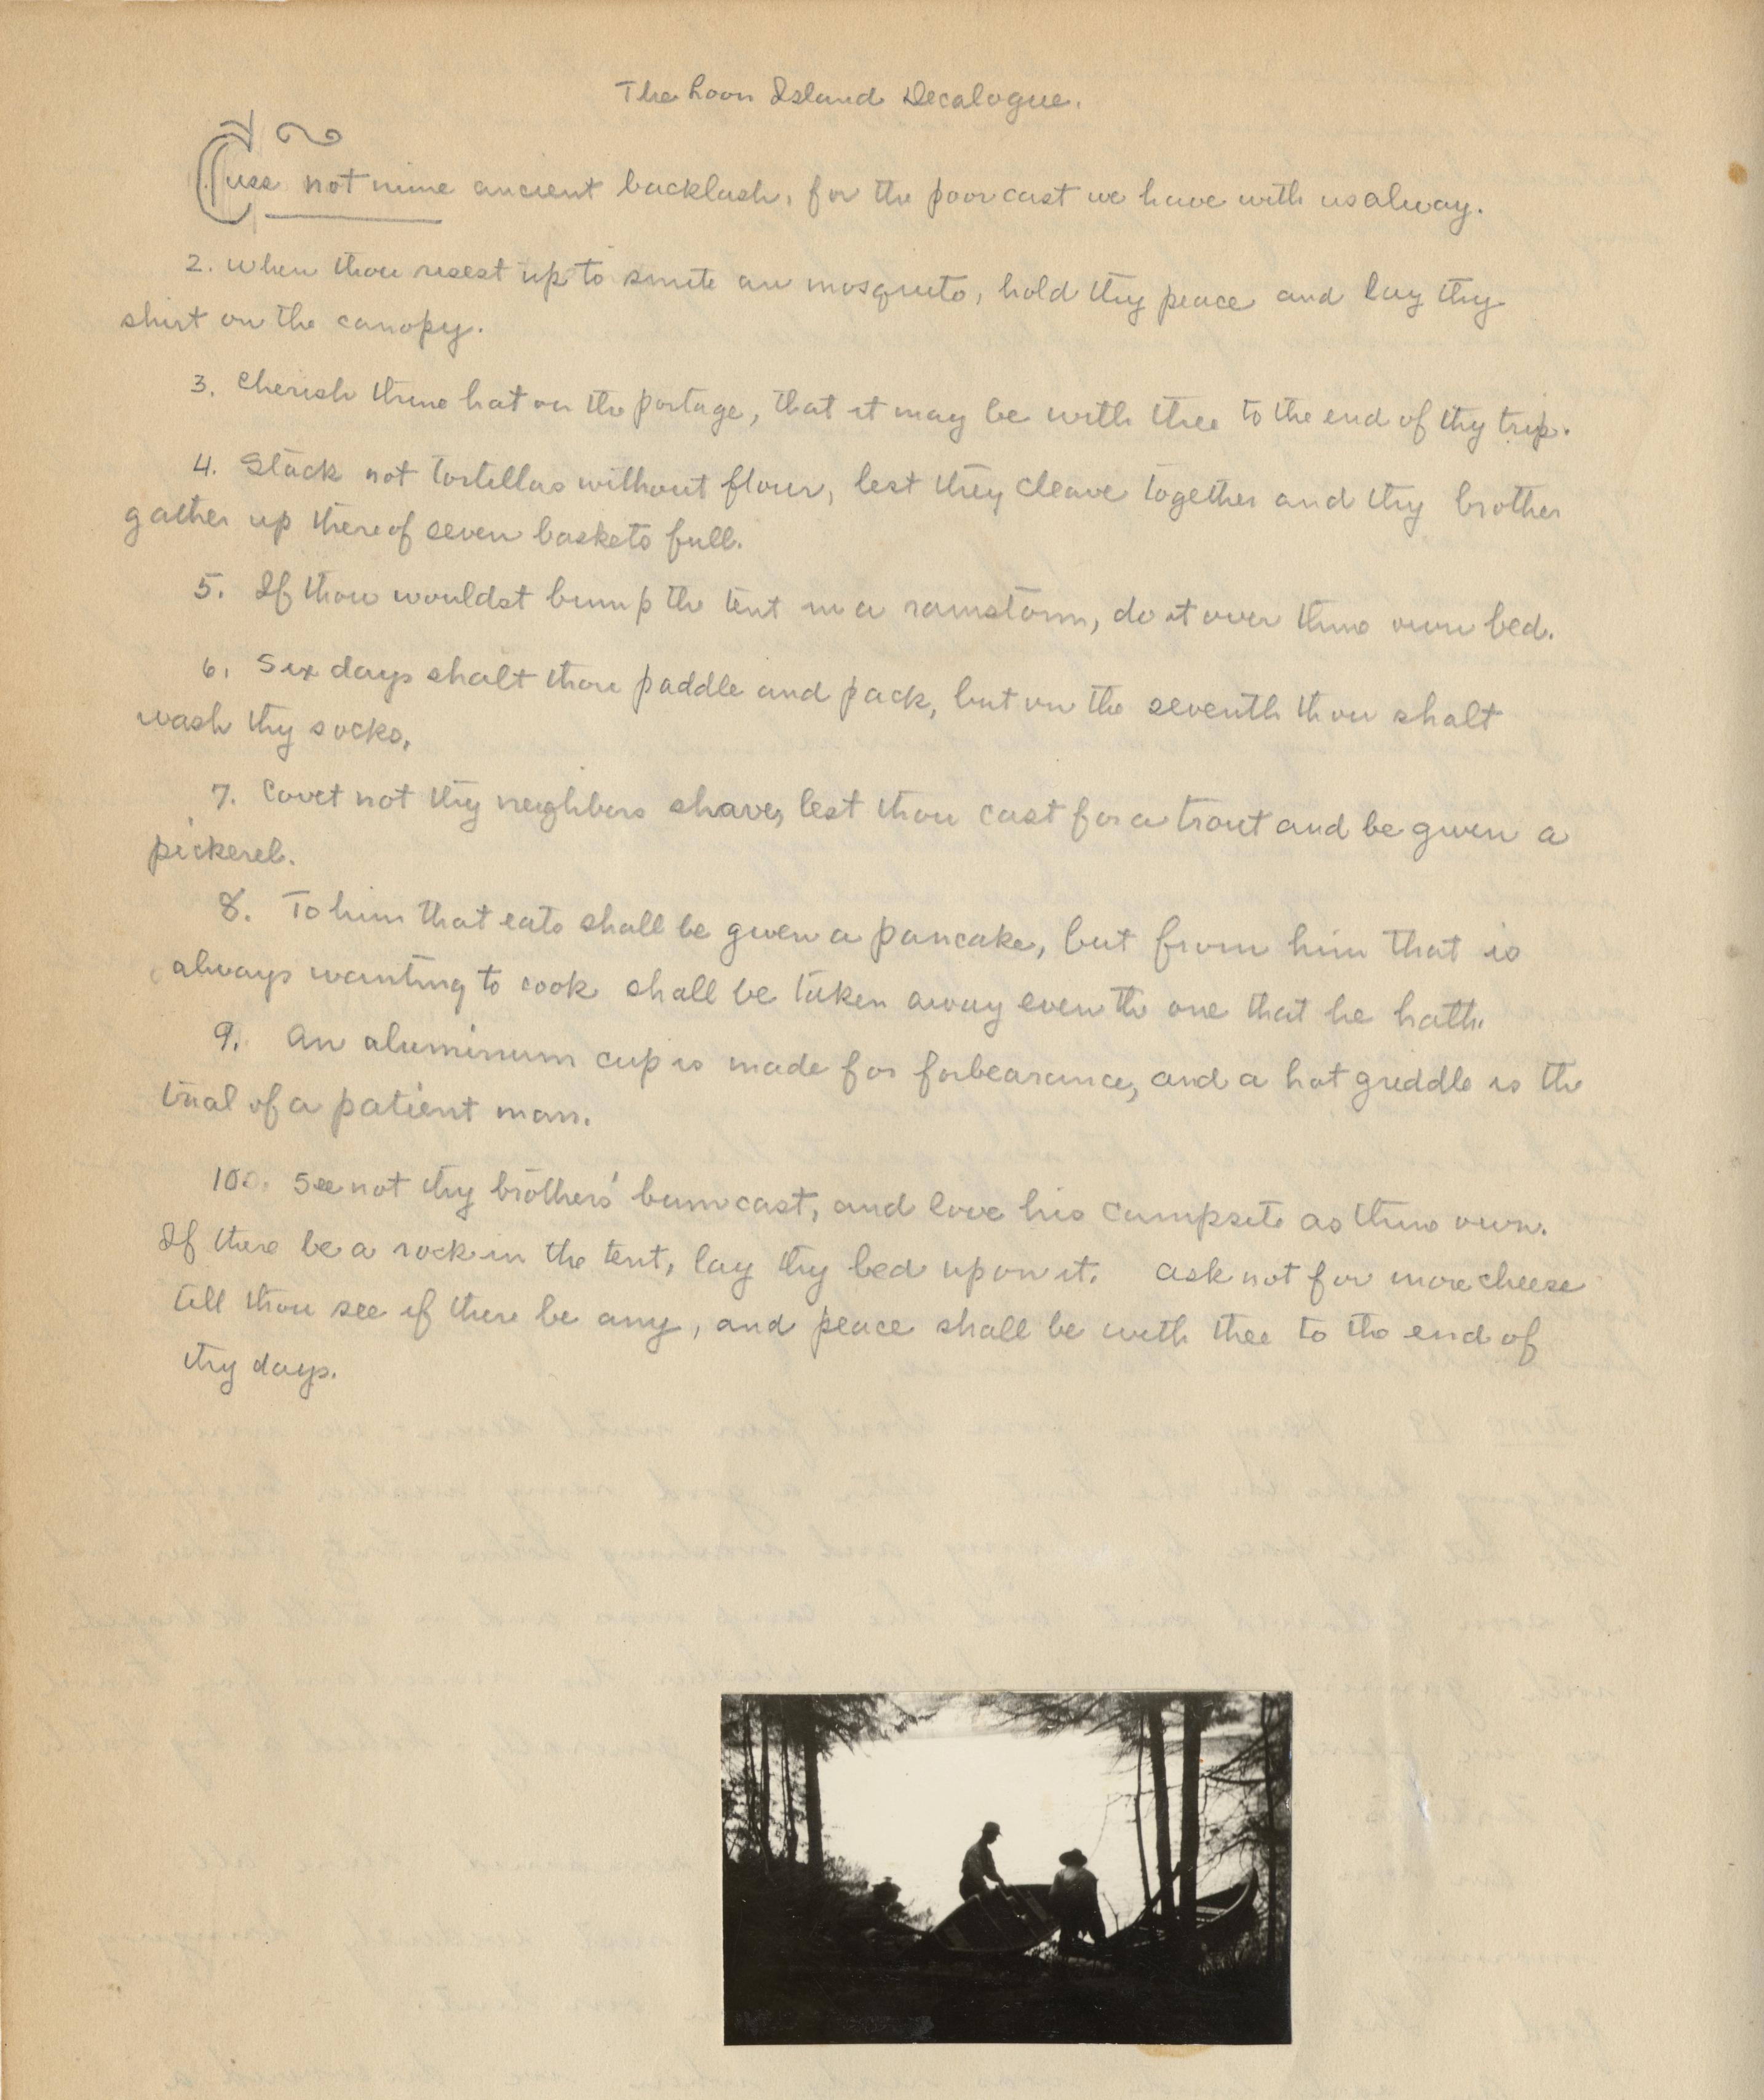 The Loon Island Decalogue.
Cuss not mine ancient backlash, for the poor cast we have with us alway.
2. When thou risest up to smite an mosquito, hold thy peace and lay thy
shirt on the canopy.
3. Cherish thine hat on the portage, that it may be with thee to the end of thy trip.
4. Stack not tortillas without flour, lest they cleave together and thy brother
gather up thereof seven baskets full.
5. If thou wouldst bump the tent in a rainstorm, do it over thine own bed.
6. Six days shalt thou paddle and pack, but on the seventh thou shalt
wash thy socks.
7. Covet not thy neighbors shave, lest thou cast for a trout and be given a
pickerel.
8. To him that eats shall be given a pancake, but from him that is
always wanting to cook shall be taken away even the one that he hath.
9. An aluminum cup is made for forbearance, and a hot griddle is the
trial of a patient man.
10. See not thy brothers' bum cast, and love his campsite as thine own.
If there be a rock in the tent, lay thy bed upon it. Ask not for more cheese
till thou see if there be any, and peace shall be with thee to the end of
thy days.